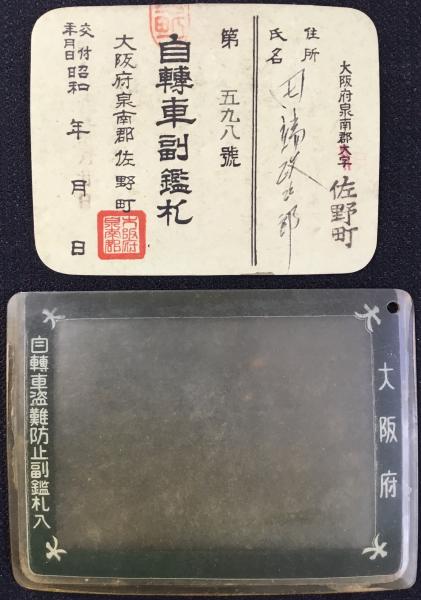 大阪府泉南郡大字
佐野町
住所
氏名
田端政次郎
第 五九八號
自轉車副鑑札
大阪府泉南郡佐野町
大阪府
泉南郡
交付
年月日
昭和 年 月 日
大阪府
自轉車盗難防止副鑑札入